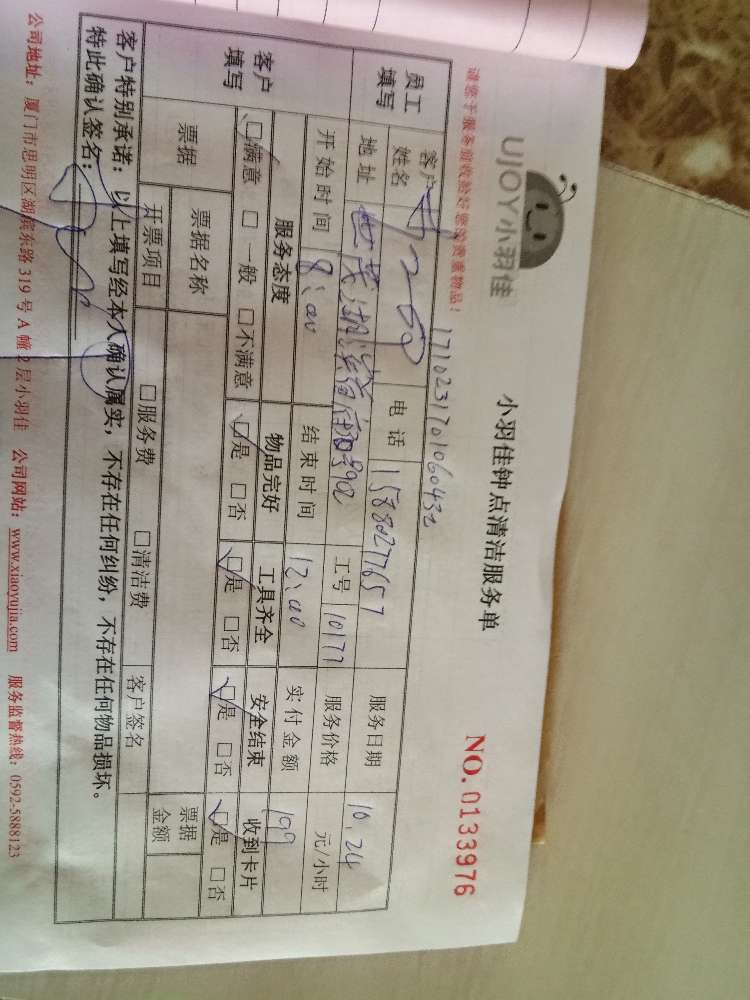 UJOY小羽佳
小羽佳钟点清洁服务单
NO.0133976
请您于服务前收捡好您的贵重物品！
1710231701060432
员工填写
客户姓名 电话 15880277657 服务日期 10.24
地址 工号 10177 服务价格 元/小时
开始时间 8:00 结束时间 12:00 实付金额 199
客户填写
服务态度 物品完好 工具齐全 安全结束 收到卡片
□满意 □一般 □不满意 □是 □否 □是 □否 □是 □否 □是 □否
票据 票据名称 票据金额
开票项目 □服务费 □清洁费 客户签名
客户特别承诺：以上填写经本人确认属实，不存在任何纠纷，不存在任何物品损坏。
特此确认签名：
公司地址：厦门市思明区湖滨东路 319 号 A 幢 2 层小羽佳 公司网站：www.xiaoyujia.com 服务监督热线：0592-5888123